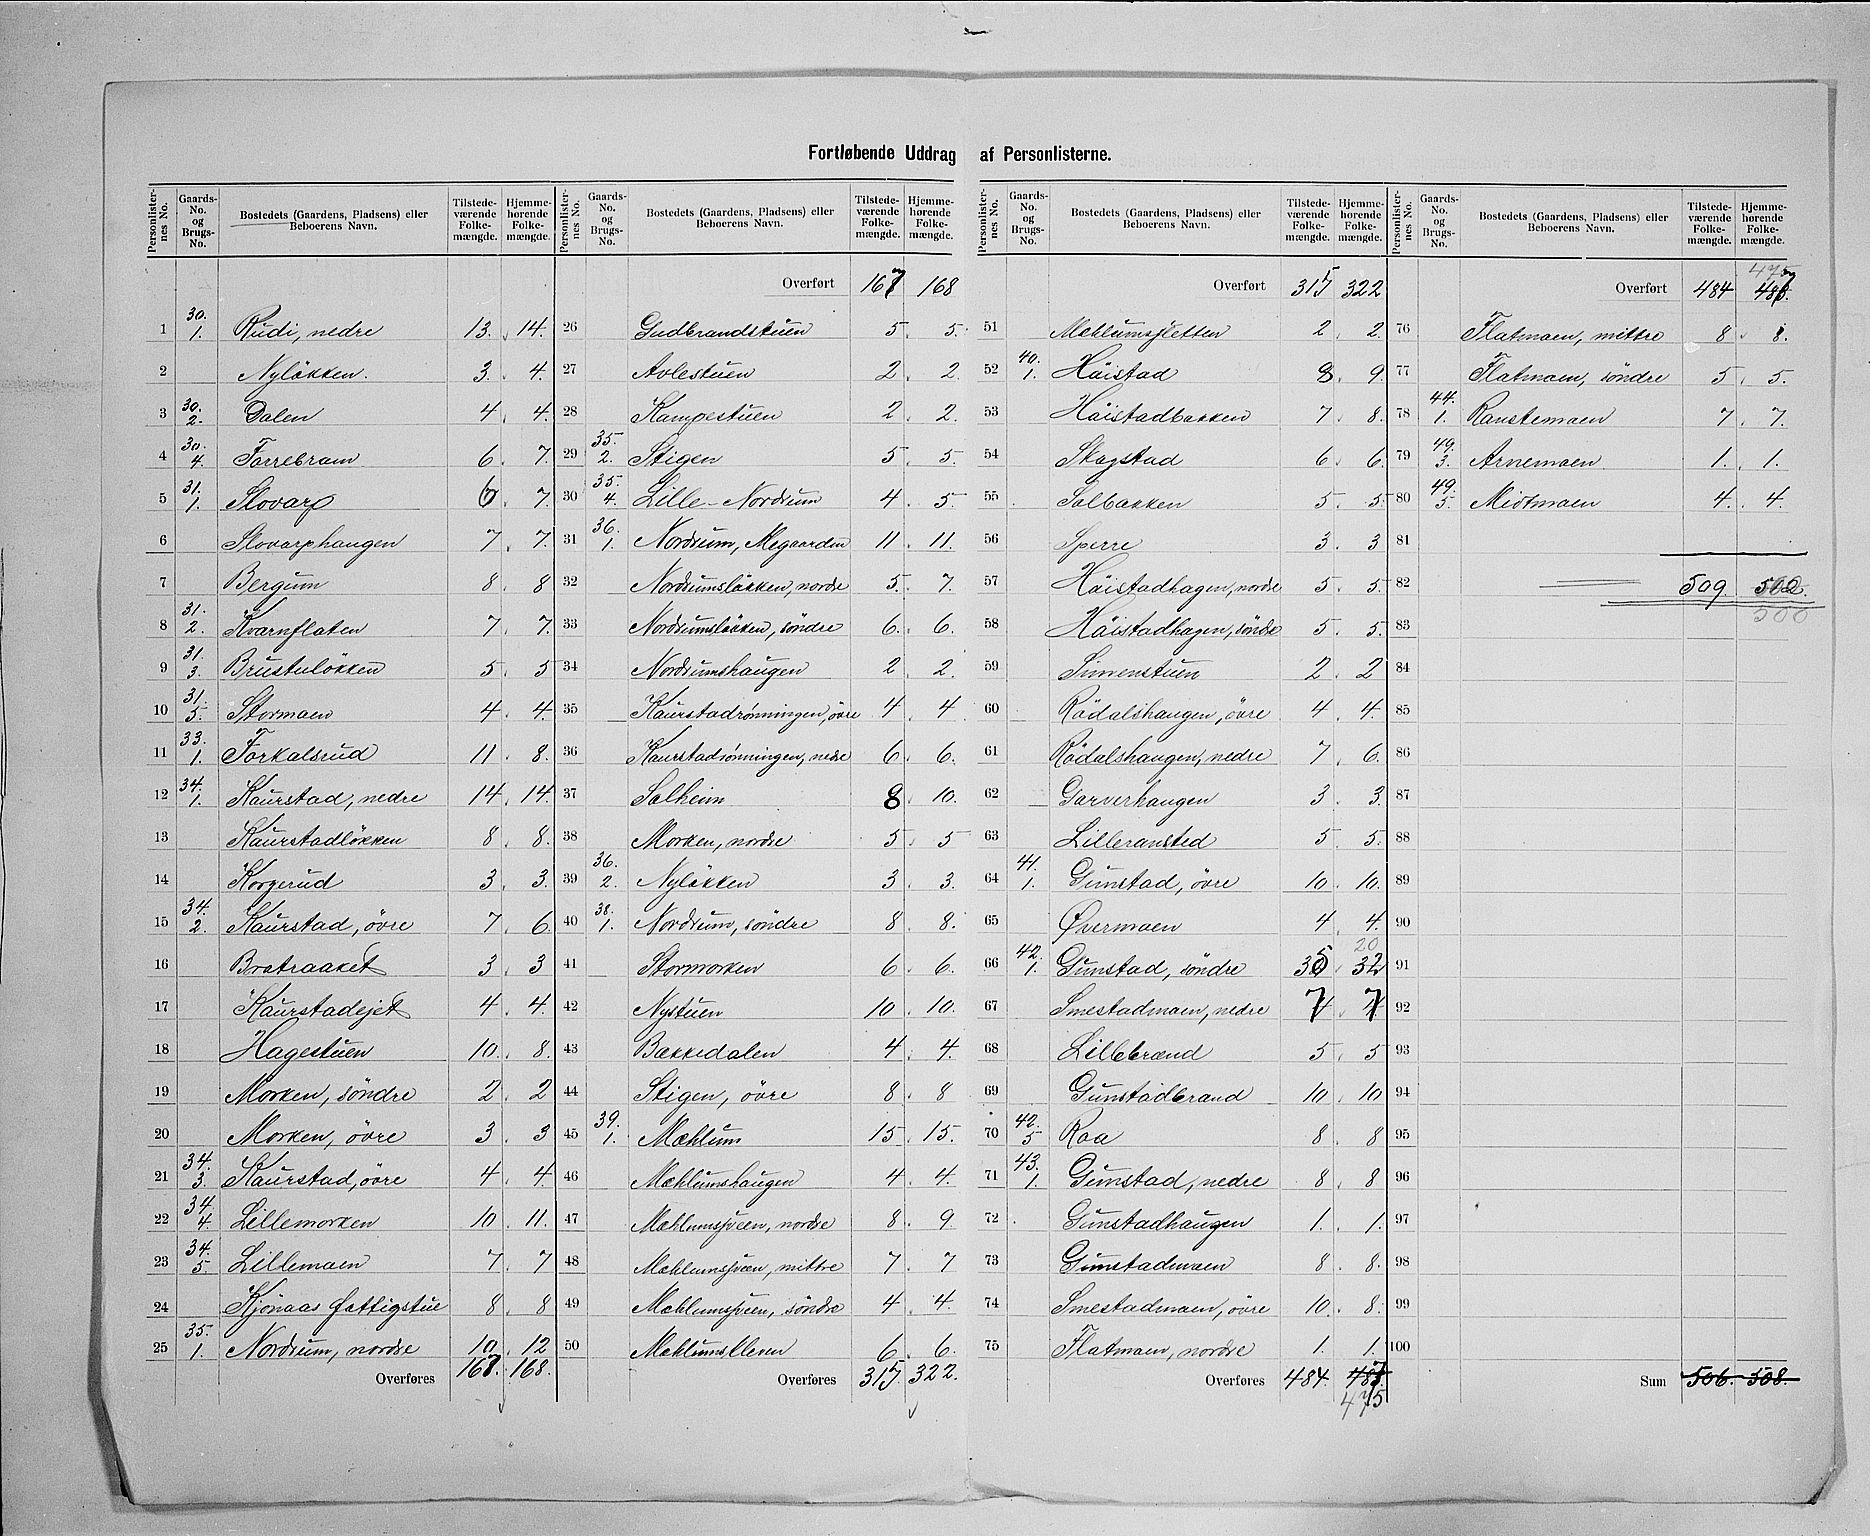 Fortløbende Uddrag af Personlisterne.
Personlister-nes No. | Gaards-No. og Brugs-No. | Bostedets (Gaardens, Pladsens) eller Beboerens Navn. | Tilstede-værende Folke-mængde. | Hjemme-hørende Folke-mængde.
1 30. 1. Rudi, nedre 13. 14.
2 Nyløkken. 3. 4.
3 30. 2. Dalen 4 4.
4 30. 4. Forrebram 6. 7.
5 31. 1. Slovarp 6. 7.
6 Slovarphaugen 7. 7.
7 Bergum 8. 8
8 31. 2. Kvarnflaten 7. 7.
9 31. 3. Brustuløkken 5. 5
10 31. 5. Stormoen 4. 4.
11 33. 1. Forkalsrud 11. 8.
12 34. 1. Kaurstad, nedre 14. 14.
13 Kaurstadløkken 8. 8.
14 Korgerud 3. 3.
15 34. 2. Kaurstad, övre 7. 6.
16 Bratraaket 3. 3
17 Kaurstadejet 4. 4.
18 Hagestuen 10. 8.
19 Morken, söndre 2. 2
20 Morken, övre 3. 3
21 34. 3. Kaurstad, övre 4. 4.
22 34. 4. Lillemorken 10. 11.
23 34. 5. Lillemoen 7. 7
24 Kjönaas Fattigstue 8. 8
25 35. 1. Nordrum, nordre 10. 12
Overføres 167. 168.
Personlister-nes No. | Gaards-No. og Brugs-No. | Bostedets (Gaardens, Pladsens) eller Beboerens Navn. | Tilstede-værende Folke-mængde. | Hjemme-hørende Folke-mængde.
Overført 167 168
26 Gudbrandstuen 5. 5.
27 Avlestuen 2. 2.
28 Kampestuen 2. 2.
29 35. 2. Stigen 5. 5.
30 35. 4. Lille-Nordrum 4. 5.
31 36. 1. Nordrum, Megaarden 11. 11.
32 Nordrumsløkken, nordre 5. 7.
33 Nordrumsløkken, söndre 6. 6.
34 Nordrumshaugen 2. 2.
35 Kaurstadrønningen, övre 4. 4
36 Kaurstadrønningen, nedre 6. 6.
37 Solheim 8. 10.
38 Morken, nordre 5. 5
39 36. 2. Nyløkken 3. 3.
40 38. 1. Nordrum, söndre 8. 8.
41 Stormorken 6. 6.
42 Nystuen 10. 10.
43 Bækkedalen 4. 4.
44 Stigen, övre 8. 8
45 39. 1. Mæhlum 15. 15.
46 Mæhlumshaugen 4. 4.
47 Mæhlumsveen, nordre 8. 9.
48 Mæhlumsveen, mittre 7. 7
49 Mæhlumsveen, söndre 4. 4.
50 Mæhlumskleven 6. 6.
Overføres 315. 322.
Personlister-nes No. | Gaards-No. og Brugs-No. | Bostedets (Gaardens, Pladsens) eller Beboerens Navn. | Tilstede-værende Folke-mængde. | Hjemme-hørende Folke-mængde.
Overført 315 322
51 Mæhlumssletten 2. 2.
52 40. 1. Höistad 8. 9.
53 Höistadbakken 7. 8.
54 Skogstad 6. 6.
55 Solbakken 5. 5.
56 Sperre 3. 3
57 Höistadhagen, nordre 5. 5.
58 Höistadhagen, söndre 5. 5.
59 Simenstuen 2. 2
60 Rödalshaugen, övre 4. 4.
61 Rödalshaugen, nedre 7. 6.
62 Garverhaugen 3. 3.
63 Lilleransted 5. 5.
64 41. 1. Gunstad, övre 10. 10.
65 Øvermoen 4. 4.
20
66 42. 1. Gunstad, söndre 35. 32
67 Smestadmoen, nedre 7. 7
68 Lillebrænd 5. 5
69 Gunstadbrænd 10. 10
70 42. 5 Roa 8. 8
71 43. 1. Gunstad, nedre 8. 8
72 Gunstadhaugen 1. 1.
73 Gunstadmoen 8. 8.
74 Smestadmoen, övre 10. 8.
75 Flatmoen, nordre 1. 1.
Overføres 484. 487.
475
Personlister-nes No. | Gaards-No. og Brugs-No. | Bostedets (Gaardens, Pladsens) eller Beboerens Navn. | Tilstede-værende Folke-mængde. | Hjemme-hørende Folke-mængde.
475
Overført 484 487.
76 Flatmoen, mittre 8. 8.
77 Flatmoen, söndre 5. 5.
78 44. 1. Ranstemoen 7. 7.
79 49. 3. Arnemoen 1. 1.
80 49. 5. Midtmoen 4. 4.
81
82 509.
83 500
84
85
86
87
88
89
90
91
92
93
94
95
96
97
98
99
100
Sum 506. 508.